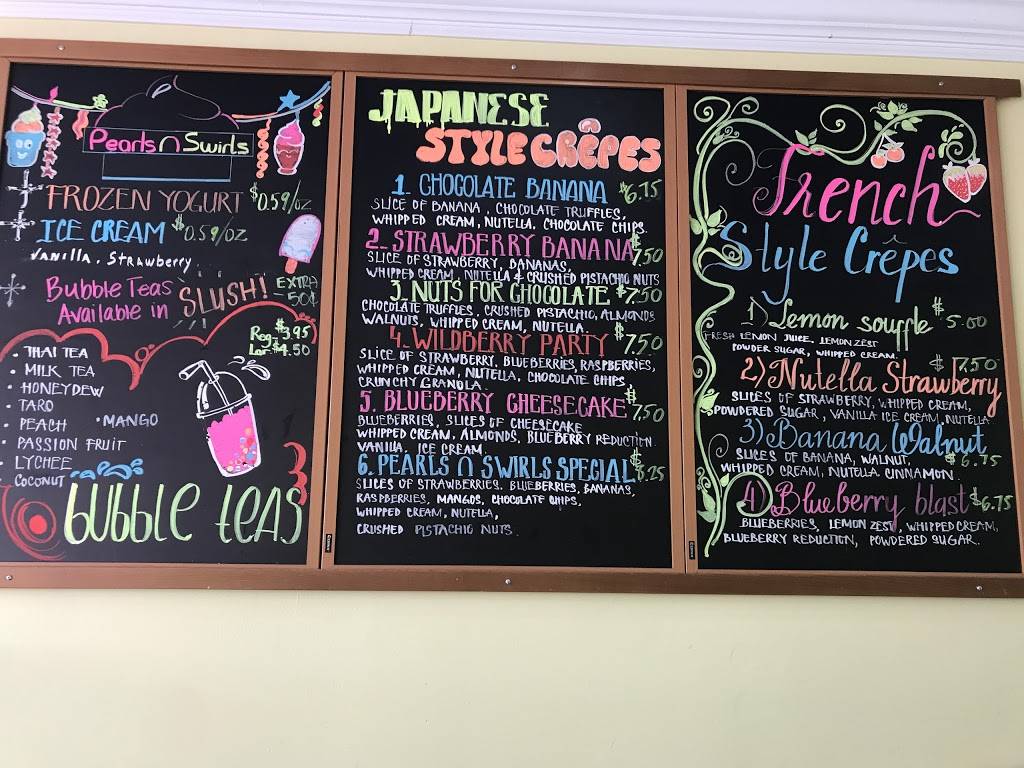 Pearls n Swirls
FROZEN YOGURT $0.59/oz
ICE CREAM $0.59/oz
Vanilla, Strawberry
Bubble Teas
Available in SLUSH! EXTRA 50¢
Reg. $3.95
Lar. $4.50
• THAI TEA
• MILK TEA
• HONEYDEW
• TARO
• PEACH • MANGO
• PASSION FRUIT
• LYCHEE
COCONUT
bubble teas
JAPANESE
STYLE CRÊPES
1. CHOCOLATE BANANA $6.75
SLICE OF BANANA, CHOCOLATE TRUFFLES,
WHIPPED CREAM, NUTELLA, CHOCOLATE CHIPS.
2. STRAWBERRY BANANA 7.50
SLICE OF STRAWBERRY, BANANAS,
WHIPPED CREAM, NUTELLA & CRUSHED PISTACHIO NUTS
3. NUTS FOR CHOCOLATE $7.50
CHOCOLATE TRUFFLES, CRUSHED PISTACHIO, ALMONDS
WALNUTS, WHIPPED CREAM, NUTELLA.
4. WILDBERRY PARTY $7.50
SLICE OF STRAWBERRY, BLUEBERRIES, RASPBERRIES,
WHIPPED CREAM, NUTELLA, CHOCOLATE CHIPS,
CRUNCHY GRANOLA.
5. BLUEBERRY CHEESECAKE $7.50
BLUEBERRIES, SLICES OF CHEESECAKE
WHIPPED CREAM, ALMONDS, BLUEBERRY REDUCTION.
VANILLA, ICE CREAM.
6. PEARLS n SWIRLS SPECIAL $8.25
SLICES OF STRAWBERRIES, BLUEBERRIES, BANANAS,
RASPBERRIES, MANGOS, CHOCOLATE CHIPS,
WHIPPED CREAM, NUTELLA,
CRUSHED PISTACHIO NUTS.
French
Style Crêpes
1) Lemon souffle $5.00
FRESH LEMON JUICE, LEMON ZEST
POWDER SUGAR, WHIPPED CREAM.
2) Nutella Strawberry $7.50
SLICES OF STRAWBERRY, WHIPPED CREAM,
POWDERED SUGAR, VANILLA ICE CREAM, NUTELLA.
3) Banana Walnut $6.75
SLICES OF BANANA, WALNUT,
WHIPPED CREAM, NUTELLA, CINNAMON.
4) Blueberry blast $6.75
BLUEBERRIES, LEMON ZEST, WHIPPED CREAM,
BLUEBERRY REDUCTION, POWDERED SUGAR.